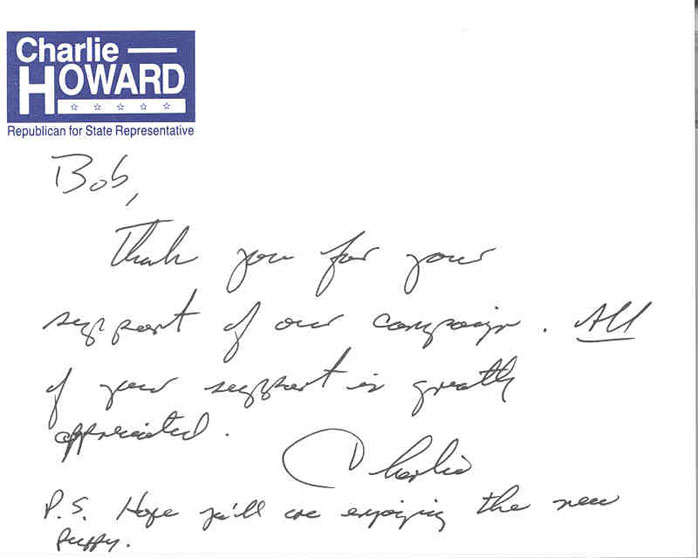 Charlie
HOWARD
Republican for State Representative
Bob,
Thank you for your
support of our campaign. All
of your support is greatly
appreciated.
Charlie
P.S. Hope ya'll are enjoying the new
puppy.